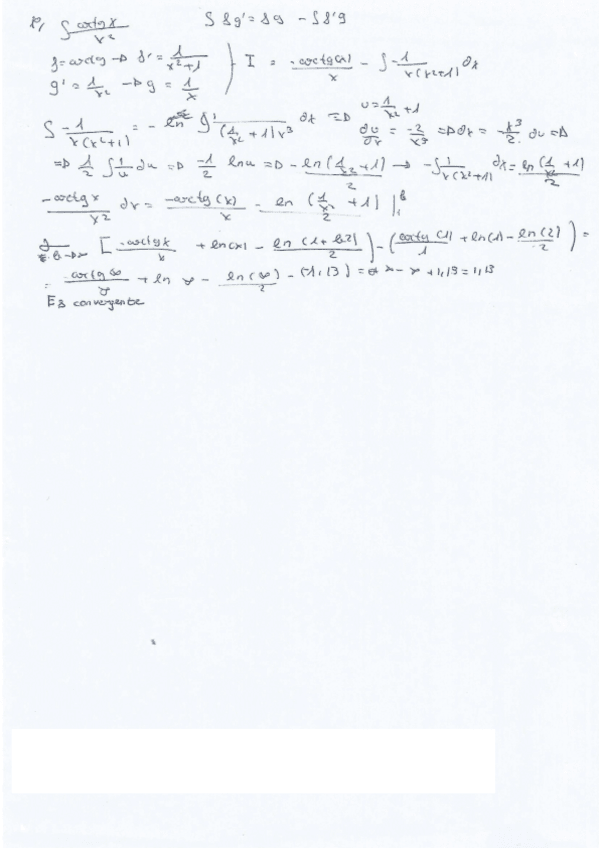 R/ ∫ arctg x / x²    ∫ f g' = f g - ∫ f' g
f = arctg → f' = 1/(x²+1)  } I = -arctg(x)/x - ∫ -1/(x(x²+1)) dx
g' = 1/x² → g = 1/x
∫ -1/(x(x²+1)) = - ∫ 1/((1/x²+1)x³) dx ⇒ u = 1/x² + 1  du/dx = -2/x³ ⇒ dx = -x³/2 du ⇒
⇒ 1/2 ∫ 1/u du ⇒ -1/2 ln u ⇒ - ln(1/x²+1)/2 → -∫ 1/(x(x²+1)) dx = ln(1/x²+1)/2
-arctg x / x² dx = -arctg(x)/x - ln(1/x²+1)/2 |₁ᵇ
[ -arctg x / x + ln(x) - ln(1+b²)/2 ] - ( arctg(1)/1 + ln(1) - ln(2)/2 ) =
= -arctg ∞/∞ + ln ∞ - ln(∞)/2 - (-1,13) = ∞ - ∞ + 1,13 = 1,13
Es convergente